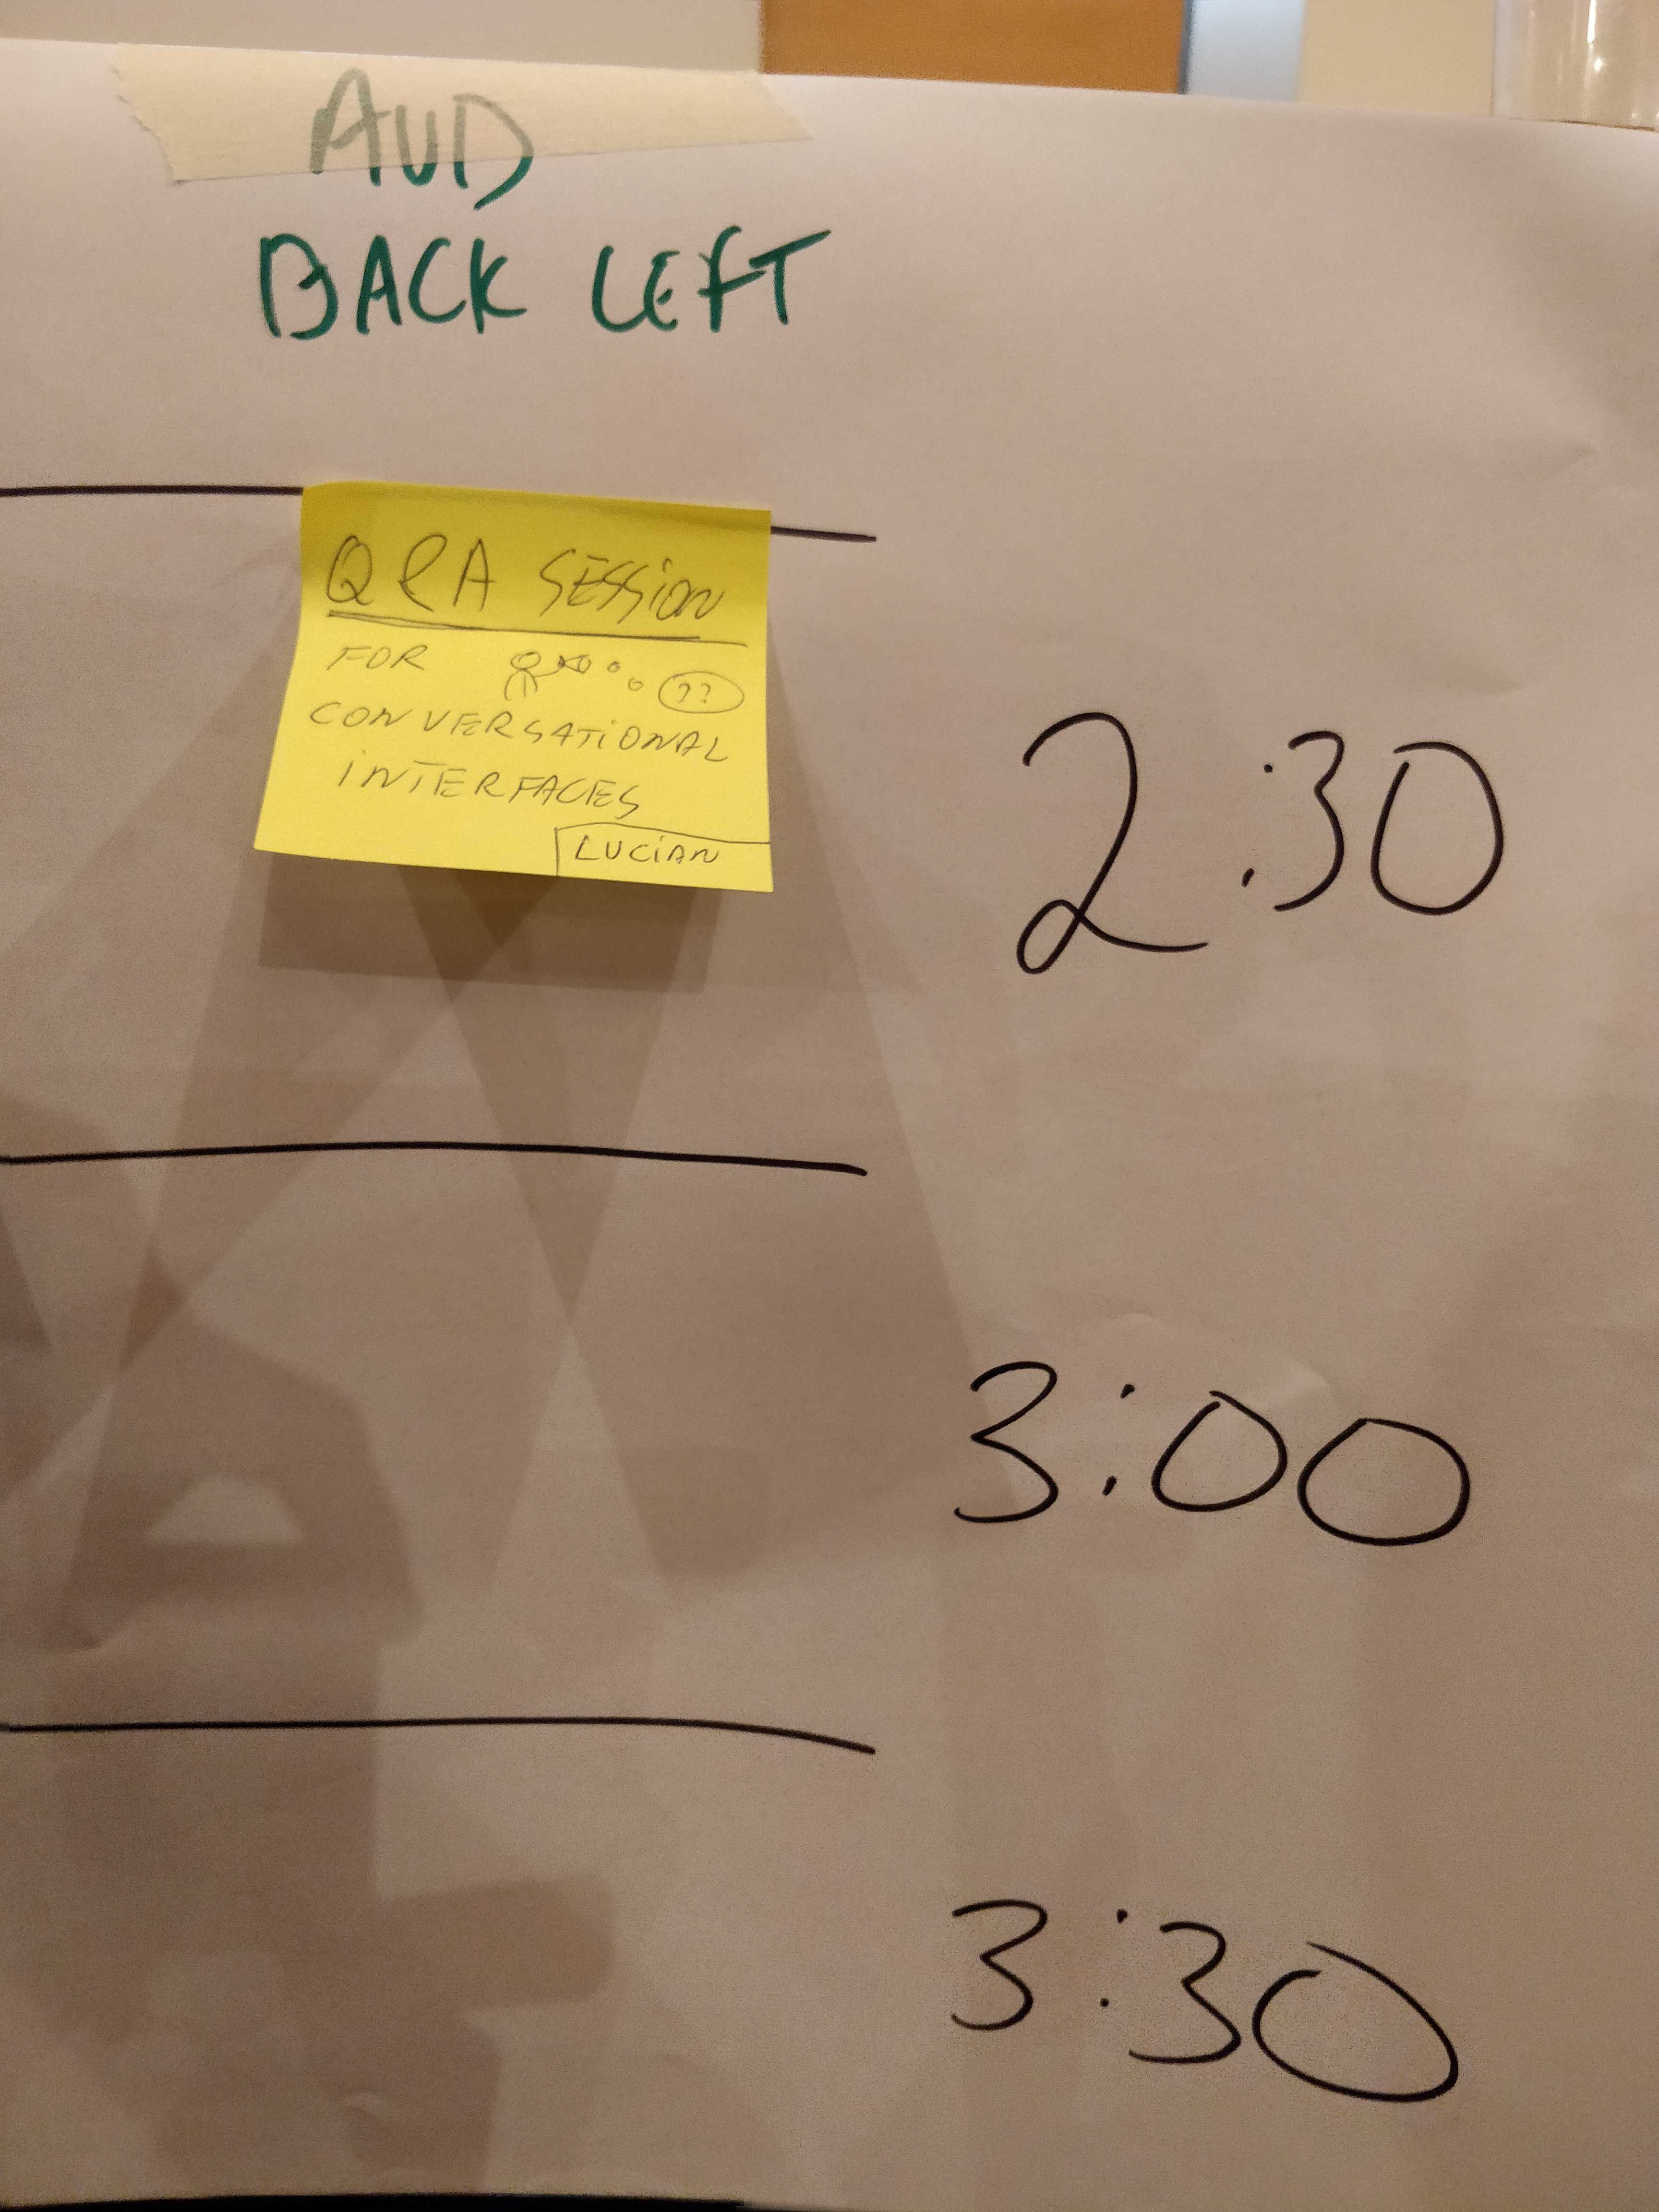 AUD
BACK LEFT
Q&A SESSION
FOR
??
CONVERSATIONAL
INTERFACES
LUCIAN
2:30
3:00
3:30